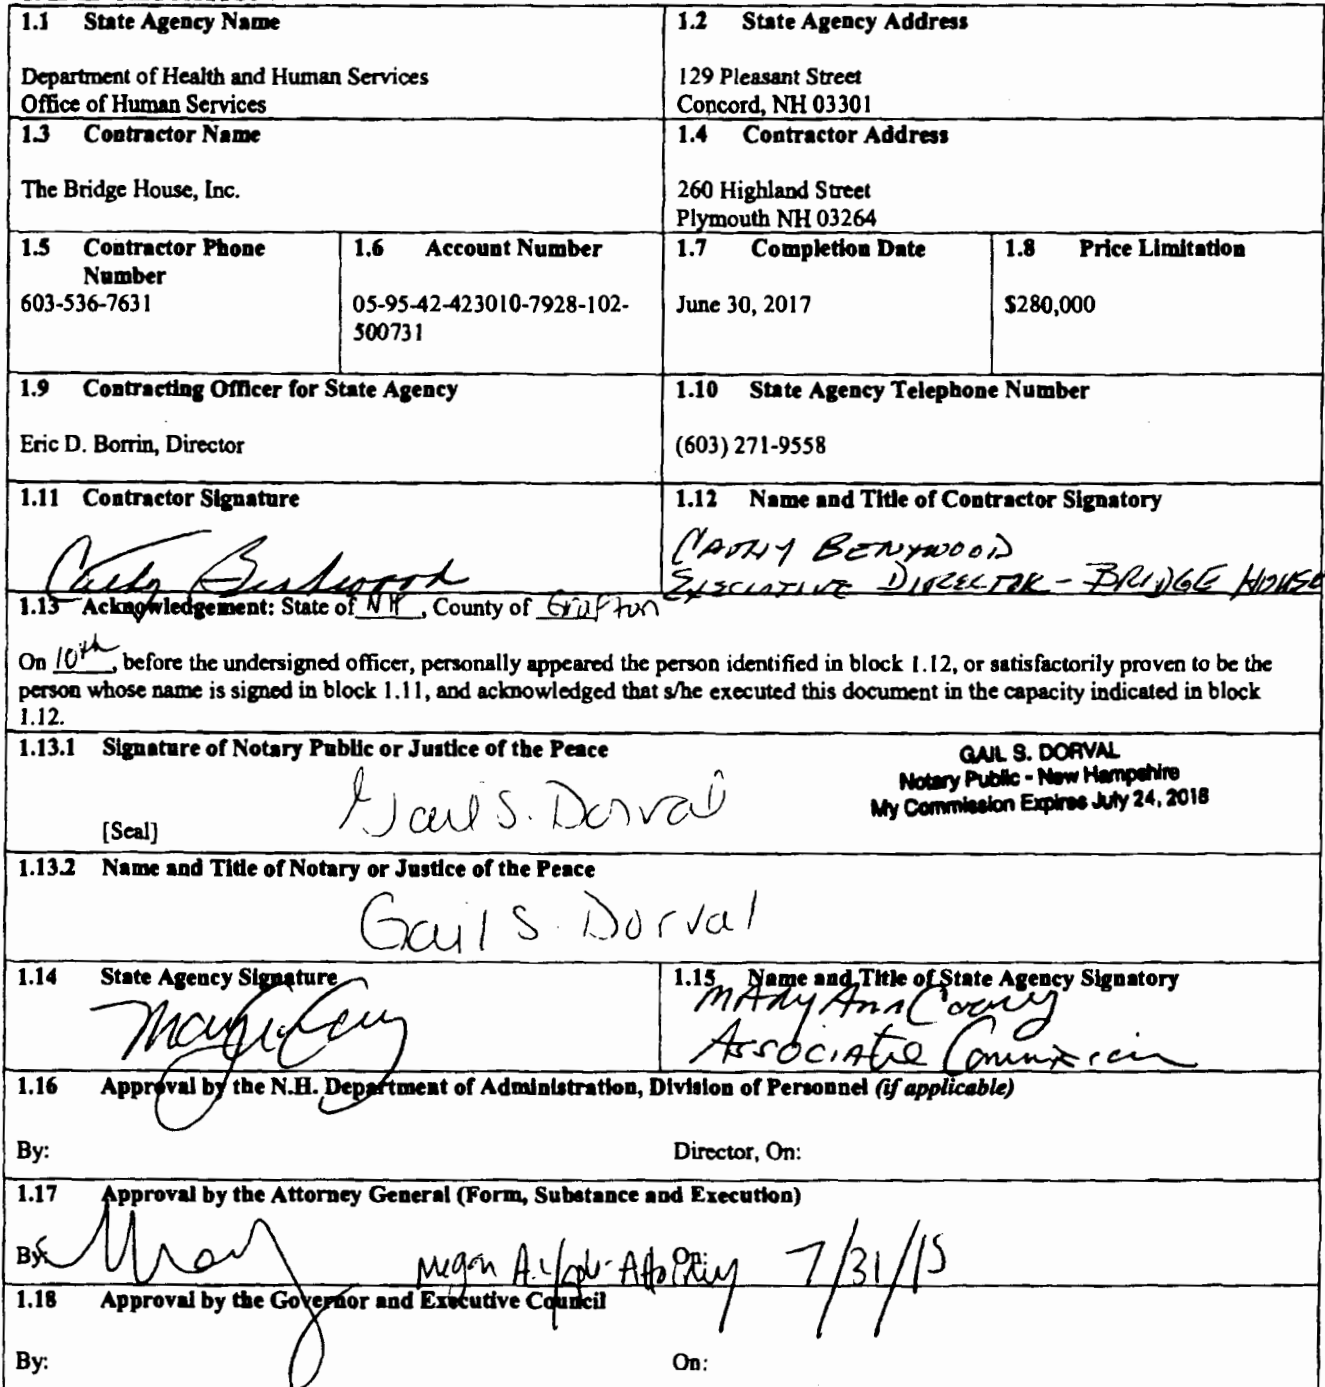 1.1 State Agency Name
Department of Health and Human Services
Office of Human Services
1.2 State Agency Address
129 Pleasant Street
Concord, NH 03301
1.3 Contractor Name
The Bridge House, Inc.
1.4 Contractor Address
260 Highland Street
Plymouth NH 03264
1.5 Contractor Phone
Number
603-536-7631
1.6 Account Number
05-95-42-423010-7928-102-
500731
1.7 Completion Date
June 30, 2017
1.8 Price Limitation
$280,000
1.9 Contracting Officer for State Agency
Eric D. Borrin, Director
1.10 State Agency Telephone Number
(603) 271-9558
1.11 Contractor Signature
Cathy Bentwood
1.12 Name and Title of Contractor Signatory
CATHY BENTWOOD
EXECUTIVE DIRECTOR - BRIDGE HOUSE
1.13 Acknowledgement: State of NH, County of Grafton
On 10th, before the undersigned officer, personally appeared the person identified in block 1.12, or satisfactorily proven to be the
person whose name is signed in block 1.11, and acknowledged that s/he executed this document in the capacity indicated in block
1.12.
1.13.1 Signature of Notary Public or Justice of the Peace
Gail S. Dorval
[Seal]
GAIL S. DORVAL
Notary Public - New Hampshire
My Commission Expires July 24, 2018
1.13.2 Name and Title of Notary or Justice of the Peace
Gail S. Dorval
1.14 State Agency Signature
1.15 Name and Title of State Agency Signatory
Mary Ann Cooney
Associate Commissioner
1.16 Approval by the N.H. Department of Administration, Division of Personnel (if applicable)
By: Director, On:
1.17 Approval by the Attorney General (Form, Substance and Execution)
By: Megan A. Attorney On: 7/31/15
1.18 Approval by the Governor and Executive Council
By: On: